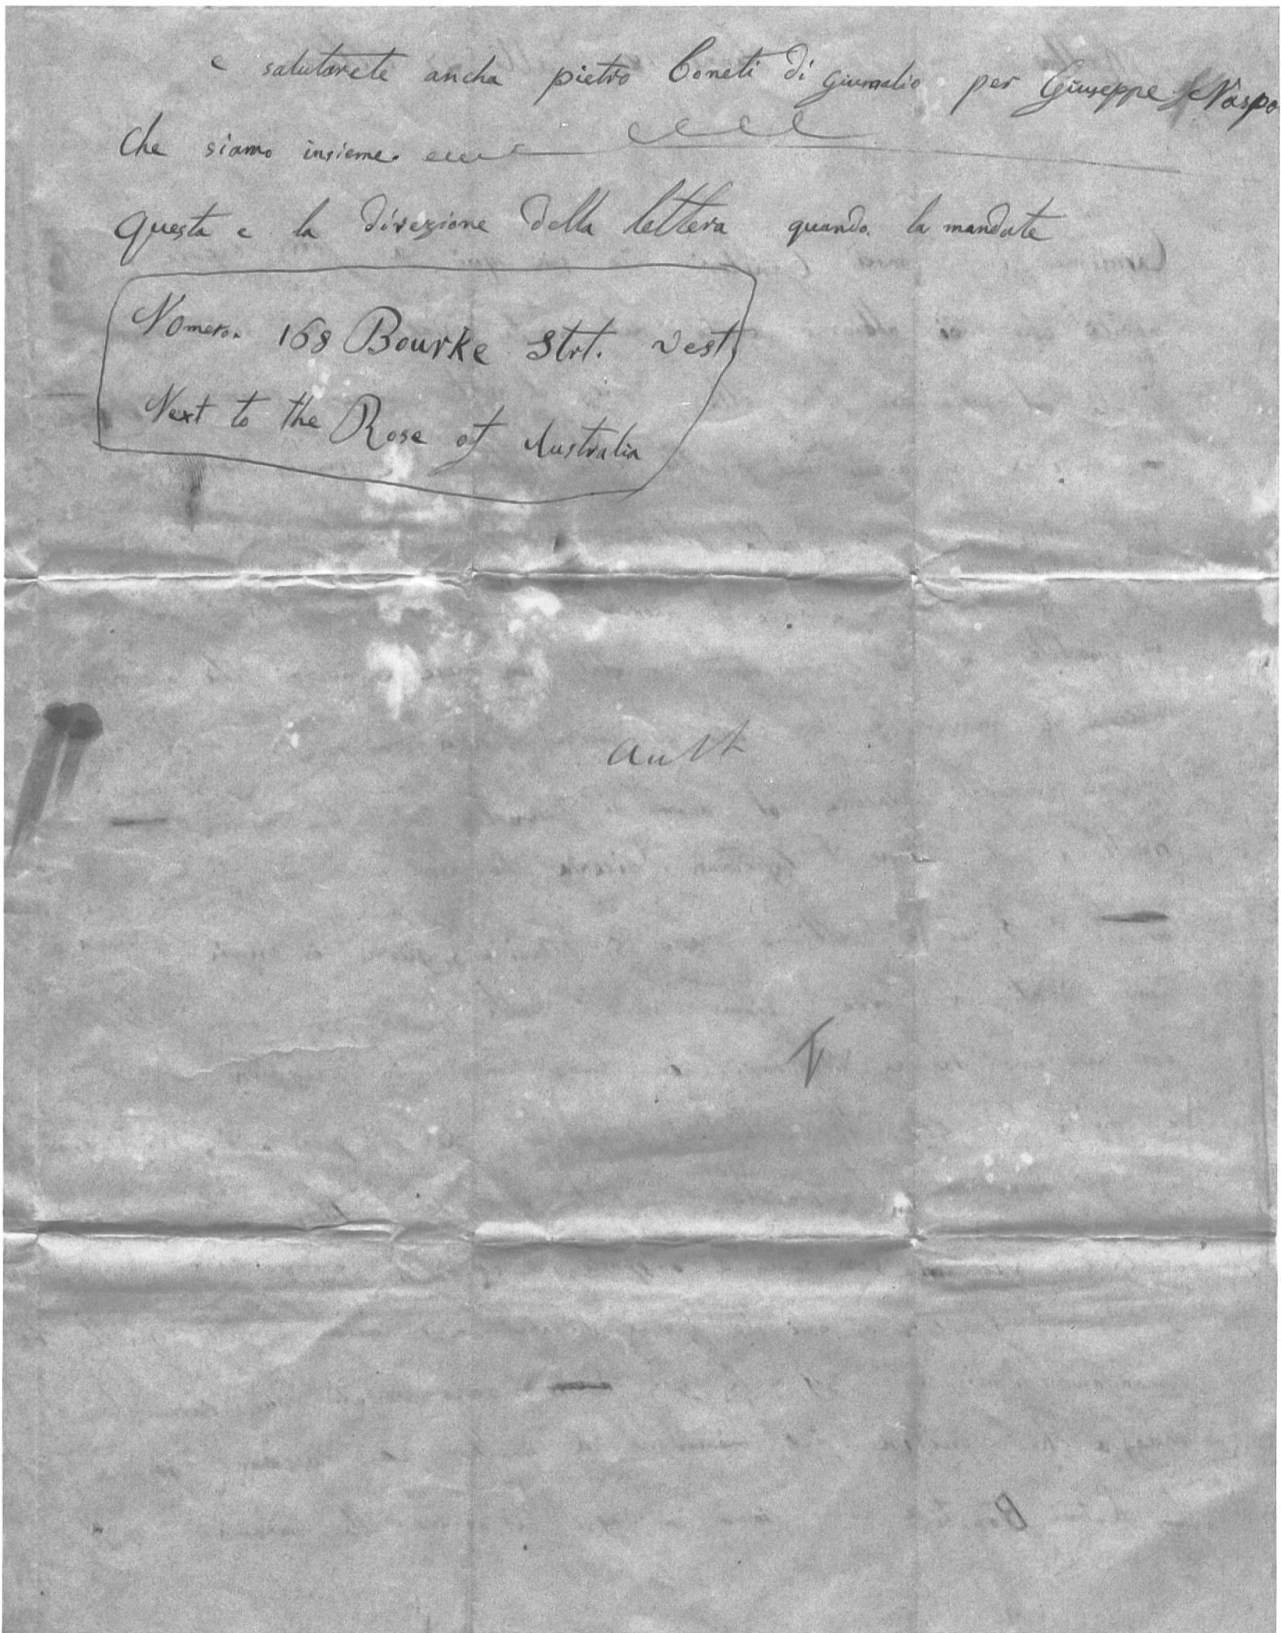 e salutarete ancha pietro Coneti di giumalio per Giuseppe Naspo
che siamo insieme.
questa e la direzione della lettera quando la mandate
Nomero. 168 Bourke Strt. vest
Next to the Rose of Australia